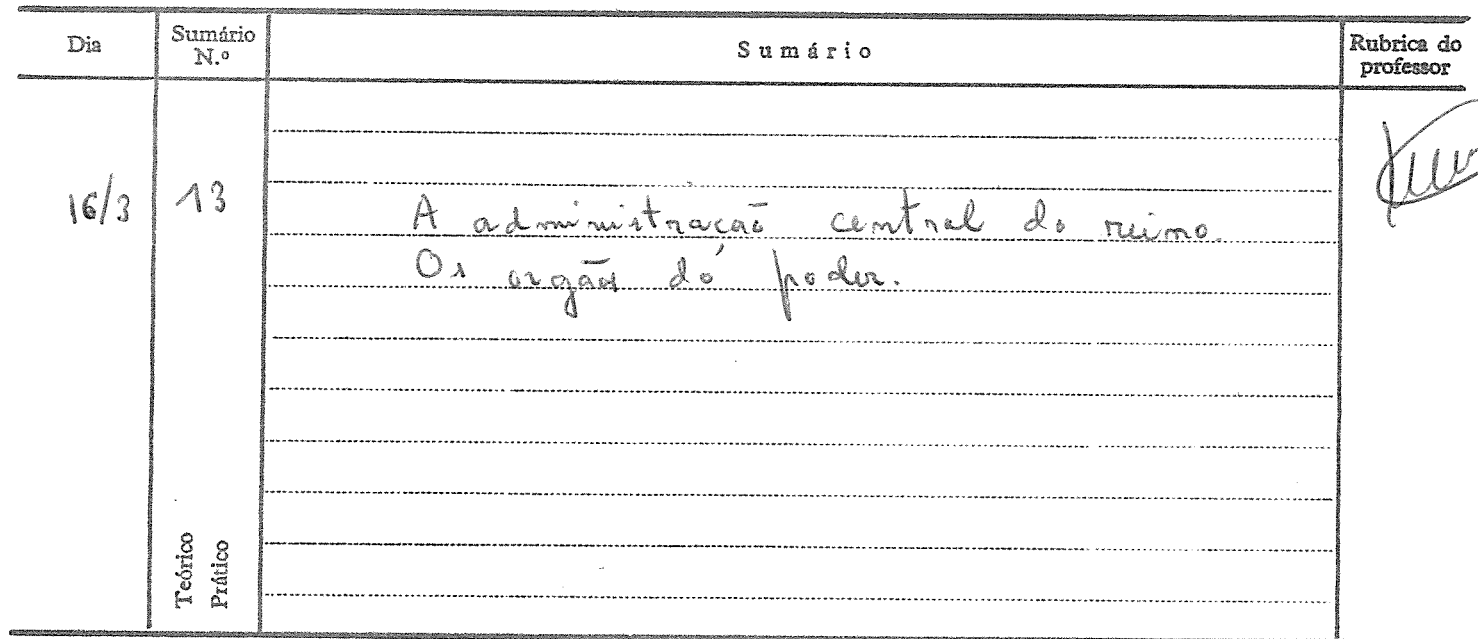 Dia
Sumário N.º
Sumário
Rubrica do professor
16/3
13
A administração central do reino.
Os orgãos do poder.
Teórico
Prático